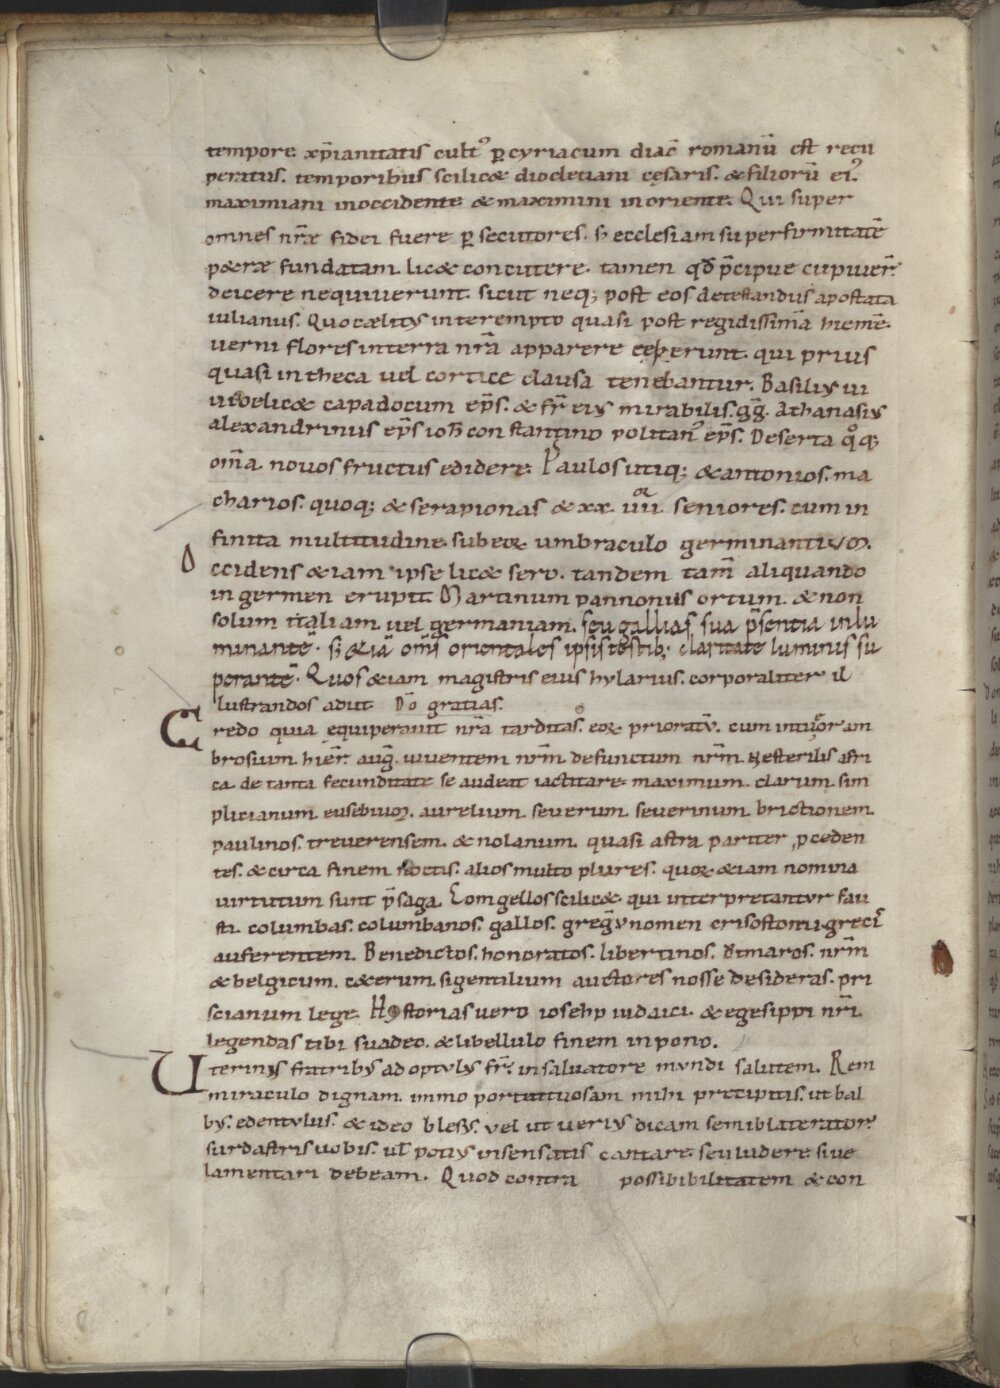 tempore xp̄ianitatis cultꝰ ꝑ cyriacum diac̄ romanū est recu
peratus. temporibus scilicæ diocletiani cęsaris. & filiorū eiꝰ.
maximiani in occidente & maximini in oriente. Qui super
omnes nr̄æ fidei fuere ꝑsecutores. s; ecclesiam super firmitatē
p&ræ fundatam. lic& concutere. tamen qd̄ p̄cipue cupiuer̄.
deicere nequiuerunt. sicut neq; post eos detestandus apostata
iulianus. Quo cælitus interempto quasi post regidissimā hiemē.
uerni flores in terra nr̄a apparere ceperunt. qui prius
quasi in theca uel cortice clausa tenebantur. Basilius ui
uidelic& capadocum ep̄s. & fr̄ eius mirabilis. gḡ. Athanasius
alexandrinus ep̄s ioh̄ constantinopolitanꝰ ep̄s. Deserta qͦq;
om̄a nouos fructus edidere. Paulos utiq; & antonios. ma
charios. quoq; & serapionas & xx. iiii or seniores. cum in
finita multitudine. sub eoꝝ umbraculo germinantium.
O ccidens &iam ipse lic& sero. tandem tam̄ aliquando
in germen erupit. Martinum pannoniis ortum. & non
solum italiam. uel germaniam. seu gallias sua p̄sentia inlu
minantē. s; &iā om̄s orientales ipsis testib; claritate luminis su
perantē. Quos &iam magistris eius hylarius. corporaliter il
lustrandos adiit. Dō gratias.
C redo quia equiperauit nr̄a tarditas. eoꝝ prioratū. cum intuor am
brosium. hier̄. aug̃. uiuentem nr̄m defunctum nr̄m. Ne sterilis afri
ca de tanta fecunditate se audeat iactitare. maximum. clarum. sim
plicianum. eusebium. aurelium. seuerum. seuerinum. brictionem.
paulinos. treuerensem. & nolanum. quasi astra pariter p̱ceden
tes. & circa finem noctis. alios multo plures. quoꝝ &iam nomina
uirtutum sunt p̄saga. Comgellos scilic& qui interpretantur fau
sti. columbas. columbanos. gallos. greg̃ nomen crisostomi. greci
auferentem. Benedictos. honoratos. libertinos. domaros. nr̄m
& belgicum. c&erum si gentilium auctores nosse desideras. pri
scianum lege. Hystorias uero iosehp iudaici. & egesippi nr̄i.
legendas tibi suadeo. & libellulo finem inpono.
U terinis fratribus adoptulus fr̄. in saluatore mundi salutem. Rem
miraculo dignam. immo portentuosam mihi precipitis. ut bal
bus. edentulus. & ideo blesus. uel ut uerius dicam semiblaterator.
surdastris uobis. ul̄ potius insensatis cantare. seu ludere siue
lamentari debeam. Quod contra possibibilitatem & con